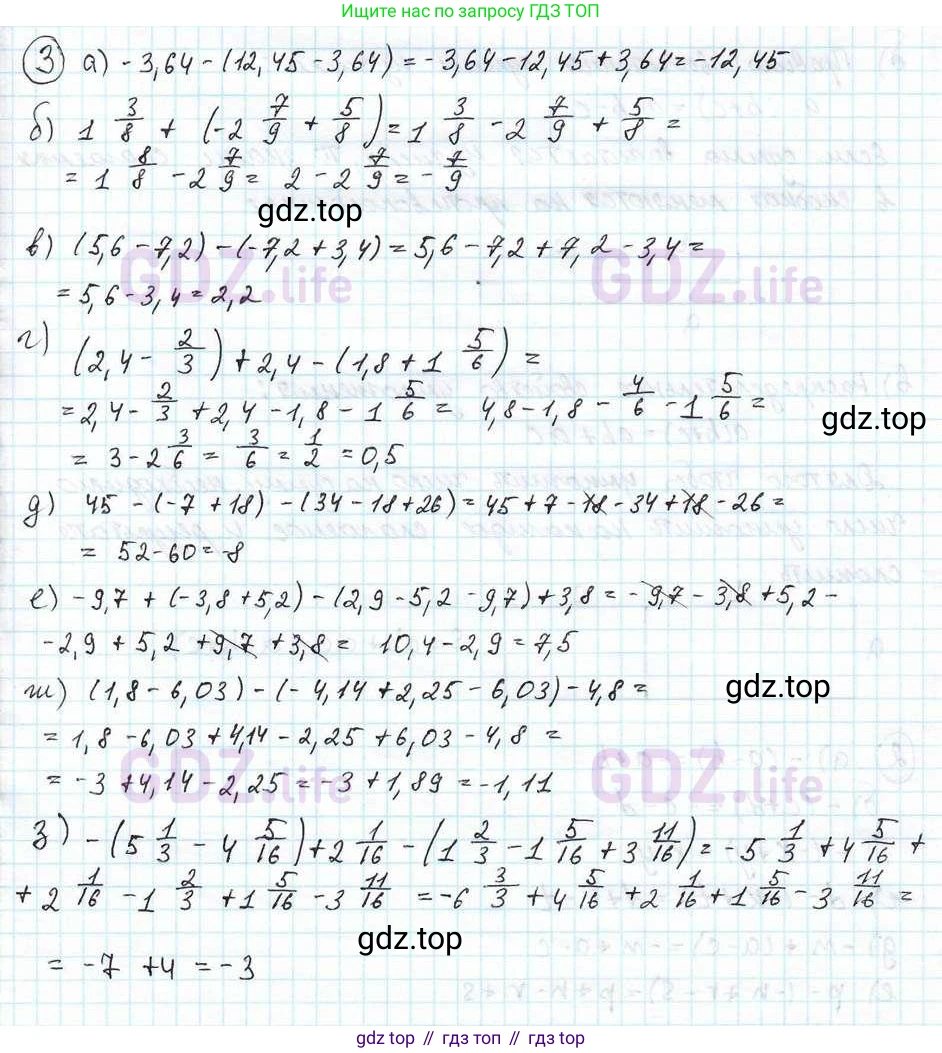 Ищите там по запросу ГДЗ ТОП
③ а) -3,64 - (12,45 - 3,64) = -3,64 - 12,45 + 3,64 = -12,45
б) 1 3/8 + (-2 7/9 + 5/8) = 1 3/8 - 2 7/9 + 5/8 =
= 1 8/8 - 2 7/9 = 2 - 2 7/9 = - 7/9
gdz.top
в) (5,6 - 7,2) - (-7,2 + 3,4) = 5,6 - 7,2 + 7,2 - 3,4 =
GDZ.life GDZ.life
= 5,6 - 3,4 = 2,2
г) (2,4 - 2/3) + 2,4 - (1,8 + 1 5/6) =
= 2,4 - 2/3 + 2,4 - 1,8 - 1 5/6 = 4,8 - 1,8 - 4/6 - 1 5/6 =
gdz.top
= 3 - 2 3/6 = 3/6 = 1/2 = 0,5
д) 45 - (-7 + 18) - (34 - 18 + 26) = 45 + 7 - 18 - 34 + 18 - 26 =
= 52 - 60 = -8
е) -9,7 + (-3,8 + 5,2) - (2,9 - 5,2 - 9,7) + 3,8 = -9,7 - 3,8 + 5,2 -
-2,9 + 5,2 + 9,7 + 3,8 = 10,4 - 2,9 = 7,5
ж) (1,8 - 6,03) - (-4,14 + 2,25 - 6,03) - 4,8 =
gdz.top
= 1,8 - 6,03 + 4,14 - 2,25 + 6,03 - 4,8 =
GDZ.life GDZ.life
= -3 + 4,14 - 2,25 = -3 + 1,89 = -1,11
з) -(5 1/3 - 4 5/16) + 2 1/16 - (1 2/3 - 1 5/16 + 3 11/16) = -5 1/3 + 4 5/16 +
+ 2 1/16 - 1 2/3 + 1 5/16 - 3 11/16 = -6 3/3 + 4 5/16 + 2 1/16 + 1 5/16 - 3 11/16 =
gdz.top
= -7 + 4 = -3
gdz top // гдз топ // gdz.top